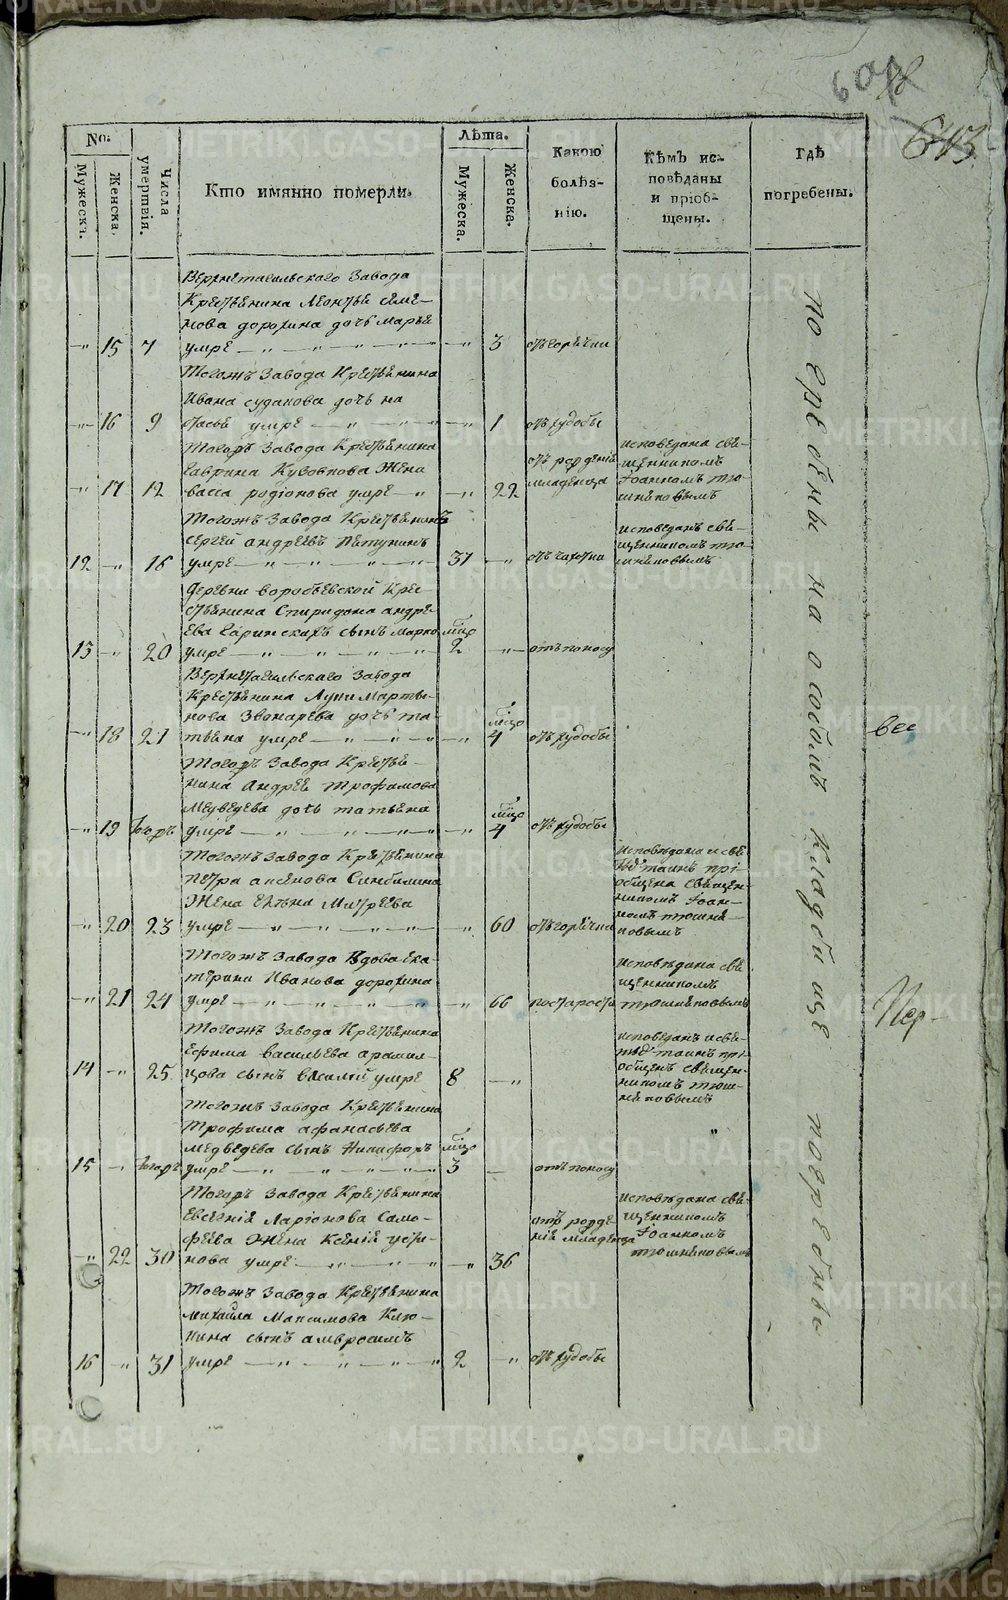 601
643
No:
Мужескъ.
Женска.
Числа умертвія.
Кто имянно померли.
Лѣта.
Мужеска.
Женска.
Какою болѣзнію.
Кѣмъ исповѣданы и пріобщены.
Гдѣ погребены.
Верхнетагильскаго Завода
Крестьянина Леонтья Семе-
нова дорохина дочь Марья
15 7 умре 3 отъ горячки
Тогожъ Завода Крестьянина
Ивана судакова дочь на
стасья
16 9 умре 1 отъ худобы
Тогожъ Завода Крестьянина
Гаврила Жена
17 12 васса родіонова умре 22 отъ рожденія младенца
исповедана свя-
щенникомъ
Іоанномъ тю-
шняковымъ
Тогожъ Завода Крестьянинъ
Сергей андреевъ Петунинъ
12 16 умре 31 отъ чахотки
исповеданъ свя-
щенникомъ тю-
шняковымъ
деревни воробьевской Кре-
стьянина Спиридона андре-
ева сынъ марко
13 20 умре 2 отъ поносу
Верхнетагильскаго Завода
Крестьянина Луки Марты-
нова Звонарева дочь та-
18 21 тьяна умре 4 отъ худобы
Тогожъ Завода Крестья-
нина андрея трофимова
Медведева дочь татьяна
19 умре 4 отъ худобы
Тогожъ Завода Крестьянина
петра аксенова
Жена елена
20 23 умре 60 отъ горячки
исповѣдана и свя
таинъ прі-
общена священ-
никомъ Іоан-
номъ тюшня-
ковымъ
Тогожъ Завода вдова ека-
терина Иванова дорохина
21 24 умре 66 по старости
исповѣдана свя
щенникомъ
тюшняковымъ
Тогожъ Завода Крестьянина
Ефима васильева арамил-
14 25 цова сынъ василій умре 8
исповеданъ и свя-
таинъ прі-
общенъ священ-
никомъ тюш-
няковымъ
Тогожъ Завода Крестьянина
Трофима афанасьева
медведева сынъ Никифоръ
15 умре 3 отъ поносу
Тогожъ Завода Крестьянина
Евсегнія Ларіонова Само-
феева Жена Ксенія усти-
22 30 нова умре 36 отъ рожде нія младенца
исповѣдана свя-
щенникомъ
Іоанномъ
тюшняковымъ
Тогожъ Завода Крестьянина
михаила Максимова Клю-
кина сынъ амвросимъ
16 31 умре 2 отъ худобы
на особомъ кладбище погребены
вес
Пер-
METRIKI.GASO-URAL.RU